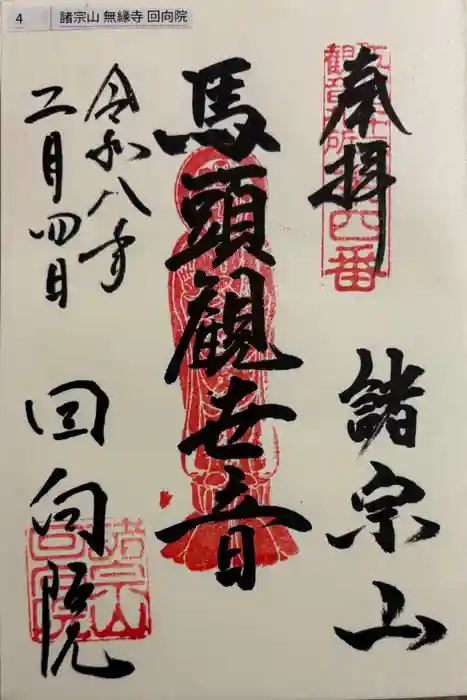 4 諸宗山 無縁寺 回向院
奉拝
四番
諸宗山
馬頭観世音
令和八年
二月四日
回向院
諸宗山